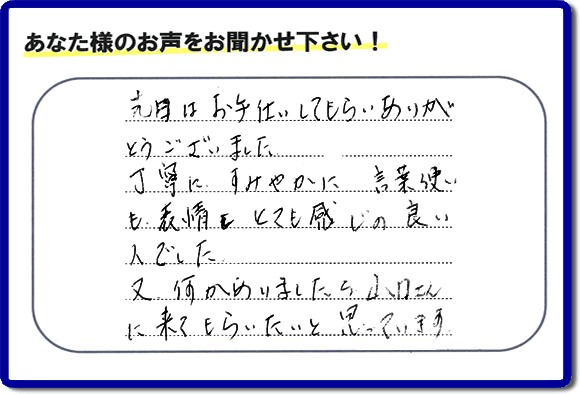 あなた様のお声をお聞かせ下さい！
先日はお手伝いしてもらいありが
とうございました
丁寧に すみやかに 言葉使い
も表情もとても感じの良い
人でした
又 何かありましたら 山口さん
に来てもらいたいと思っています